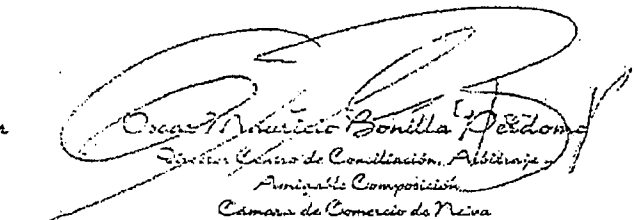 Oscar Mauricio Bonilla Perdomo
Director Centro de Conciliación, Arbitraje y
Amigable Composición
Cámara de Comercio de Neiva